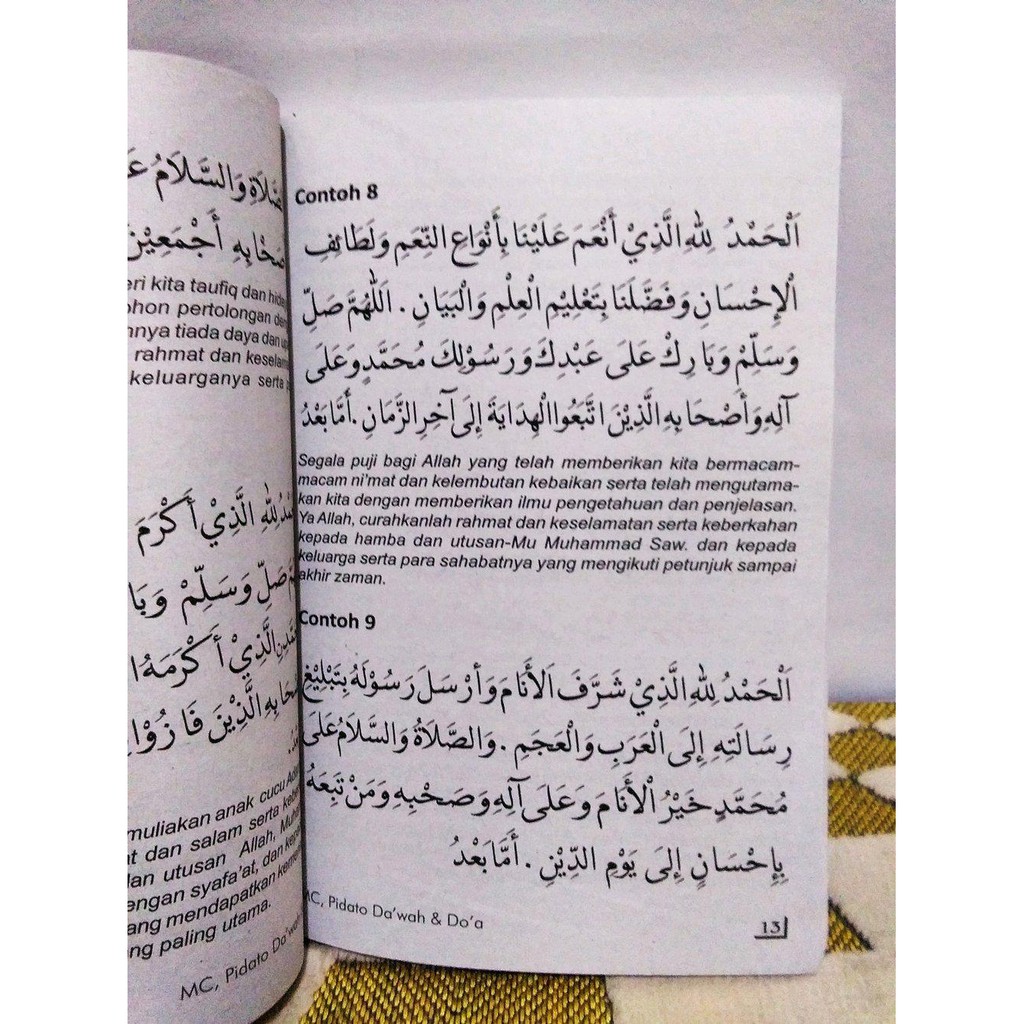 صَّلَاةِ وَالسَّلَامُ
صَحَابِهِ أَجْمَعِيْنَ
ri kita taufiq dan
ohon pertolongan
nnya tiada daya dan
rahmat dan
keluarganya serta
لِلّٰهِ الَّذِيْ أَكْرَمَ
صَلِّ وَسَلِّمْ وَبَا
الَّذِيْ أَكْرَمَهُ
حَابِهِ الَّذِيْنَ فَازُوْا
muliakan anak cucu
at dan salam serta
dan utusan Allah,
engan syafa'at, dan
ang mendapatkan
ng paling utama.
MC, Pidato Da'wah
Contoh 8
اَلْحَمْدُ لِلّٰهِ الَّذِيْ أَنْعَمَ عَلَيْنَا بِأَنْوَاعِ النِّعَمِ وَلَطَائِفِ
اْلإِحْسَانِ وَفَضَّلَنَا بِتَعْلِيْمِ الْعِلْمِ وَالْبَيَانِ . اَللّٰهُمَّ صَلِّ
وَسَلِّمْ وَبَارِكْ عَلَى عَبْدِكَ وَرَسُوْلِكَ مُحَمَّدٍ وَعَلَى
آلِهِ وَأَصْحَابِهِ الَّذِيْنَ اتَّبَعُوا الْهِدَايَةَ إِلَى آخِرِ الزَّمَانِ . أَمَّا بَعْدُ
Segala puji bagi Allah yang telah memberikan kita bermacam-
macam ni'mat dan kelembutan kebaikan serta telah mengutama-
kan kita dengan memberikan ilmu pengetahuan dan penjelasan.
Ya Allah, curahkanlah rahmat dan keselamatan serta keberkahan
kepada hamba dan utusan-Mu Muhammad Saw. dan kepada
keluarga serta para sahabatnya yang mengikuti petunjuk sampai
akhir zaman.
Contoh 9
اَلْحَمْدُ لِلّٰهِ الَّذِيْ شَرَّفَ اْلأَنَامَ وَأَرْسَلَ رَسُوْلَهُ بِتَبْلِيْغِ
رِسَالَتِهِ إِلَى الْعَرَبِ وَالْعَجَمِ . وَالصَّلَاةُ وَالسَّلَامُ عَلَى
مُحَمَّدٍ خَيْرُ اْلأَنَامَ وَعَلَى آلِهِ وَصَحْبِهِ وَمَنْ تَبِعَهُ
بِإِحْسَانٍ إِلَى يَوْمِ الدِّيْنِ . أَمَّا بَعْدُ
MC, Pidato Da'wah & Do'a
13